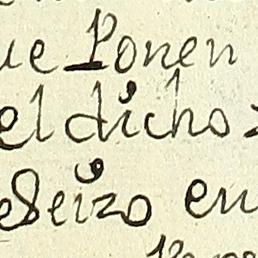 ue Ponen
el dicho
eSeizo en